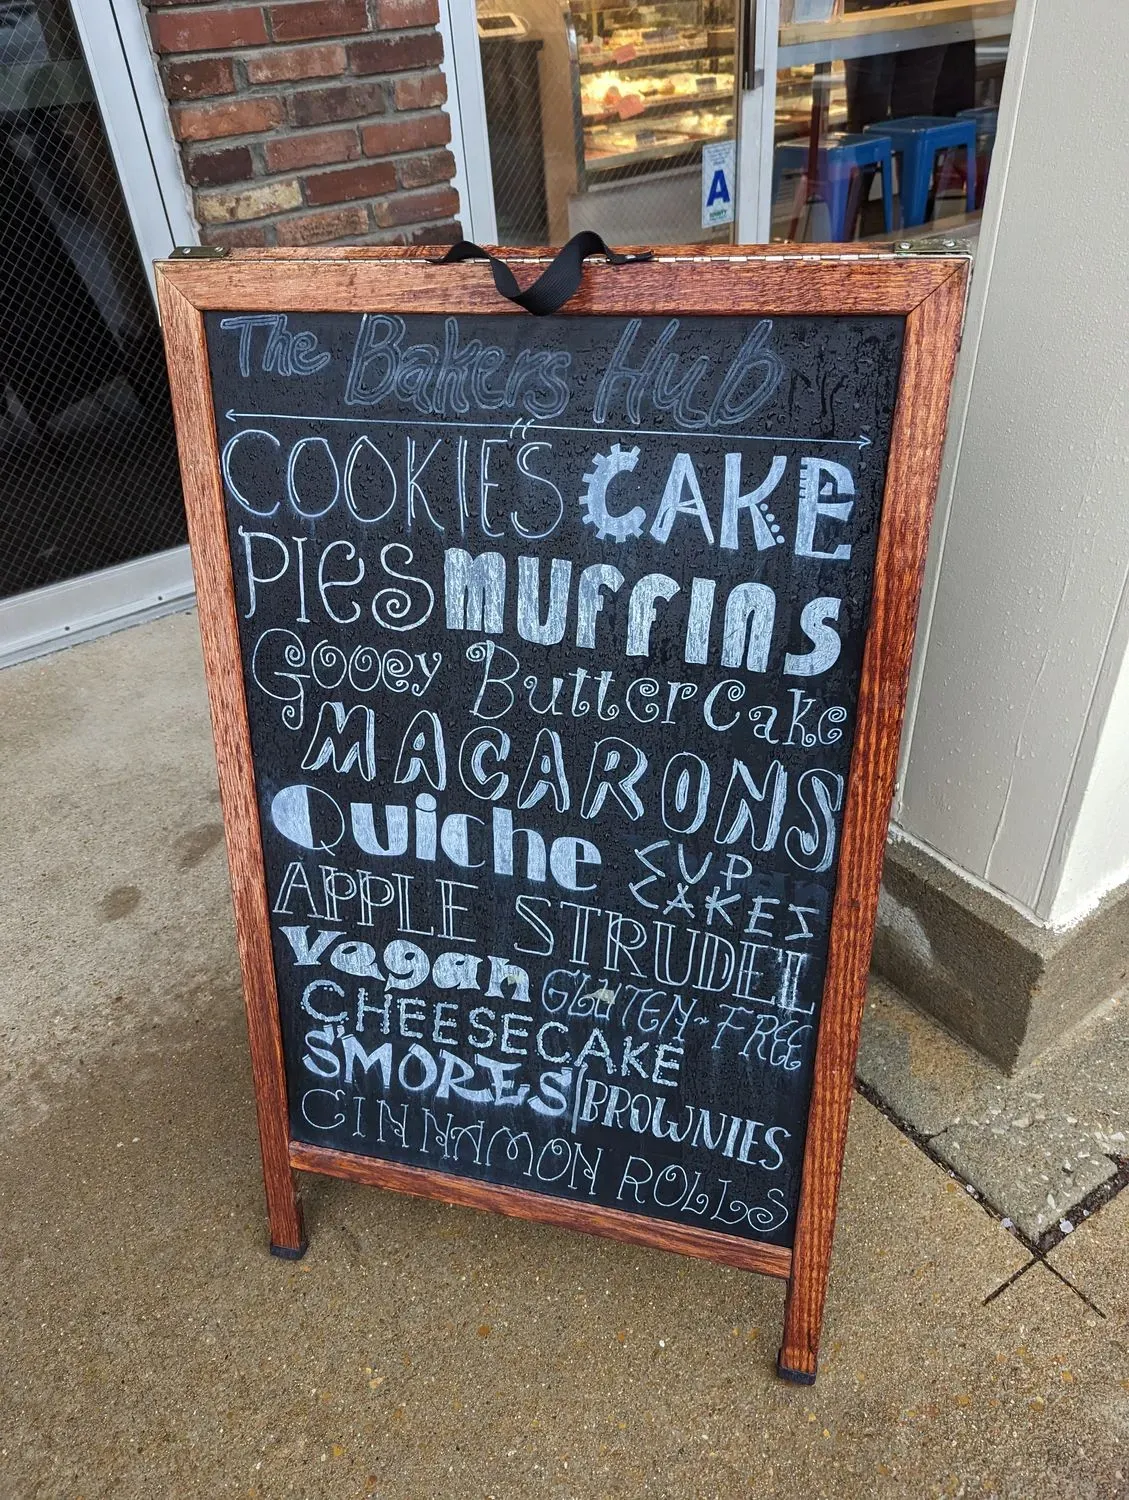 A
The Bakers Hub
COOKIES CAKE
PIES MUFFINS
Gooey ButterCake
MACARONS
Quiche CUP
CAKES
APPLE STRUDEL
Vegan GLUTEN-FREE
CHEESECAKE
S'MORES BROWNIES
CINNAMON ROLLS